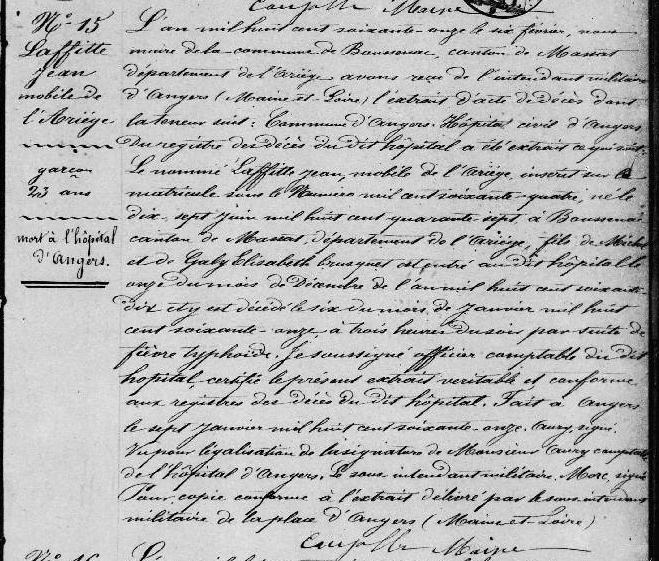 Coujolle Maine
N° 15
Laffitte
Jean
mobile de
l'Ariège
garçon
23 ans
mort à l'hôpital
d'Angers.
L'an mil huit cent soixante-onze le six février, nous
maire de la commune de Boussenac, canton de Massat
département de l'Ariège avons reçu de l'intendant militaire
d'Angers (Maine-et-Loire) l'extrait d'acte de décès dont
la teneur suit: Commune d'Angers. Hôpital civil d'Angers
Du registre des décès du dit hôpital a été extrait ce qui suit:
Le nommé Laffitte Jean, mobile de l'Ariège, inscrit sur la
matricule sous le Numéro mil cent soixante-quatre, né le
dix-sept Juin mil huit cent quarante sept à Boussenac
canton de Massat, département de l'Ariège, fils de Michel
et de Galy Elisabeth brusquet est entré au dit hôpital le
onze du mois de Décembre de l'an mil huit cent soixante
dix et y est décédé le six du mois de Janvier mil huit
cent soixante-onze, à trois heures du soir par suite de
fièvre typhoïde. Je soussigné officier comptable du dit
hôpital certifie le présent extrait véritable et conforme
aux registres des décès du dit hôpital. Fait à Angers
le sept Janvier mil huit cent soixante-onze. Aury, signé.
Vu pour légalisation de la signature de Monsieur Aury comptable
de l'hôpital d'Angers. Le sous-intendant militaire. More, signé
Pour copie conforme à l'extrait délivré par le sous-intendant
militaire de la place d'Angers (Maine-et-Loire)
Coujolle Maine
N° 16